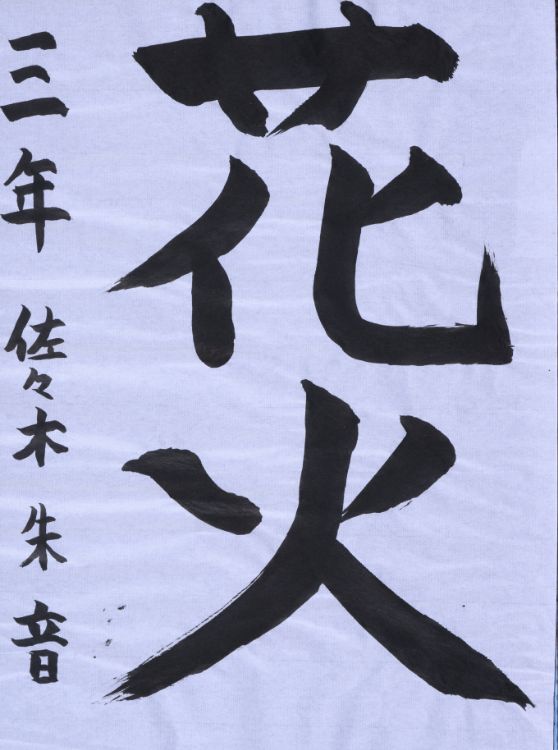 花火
三年 佐々木朱音